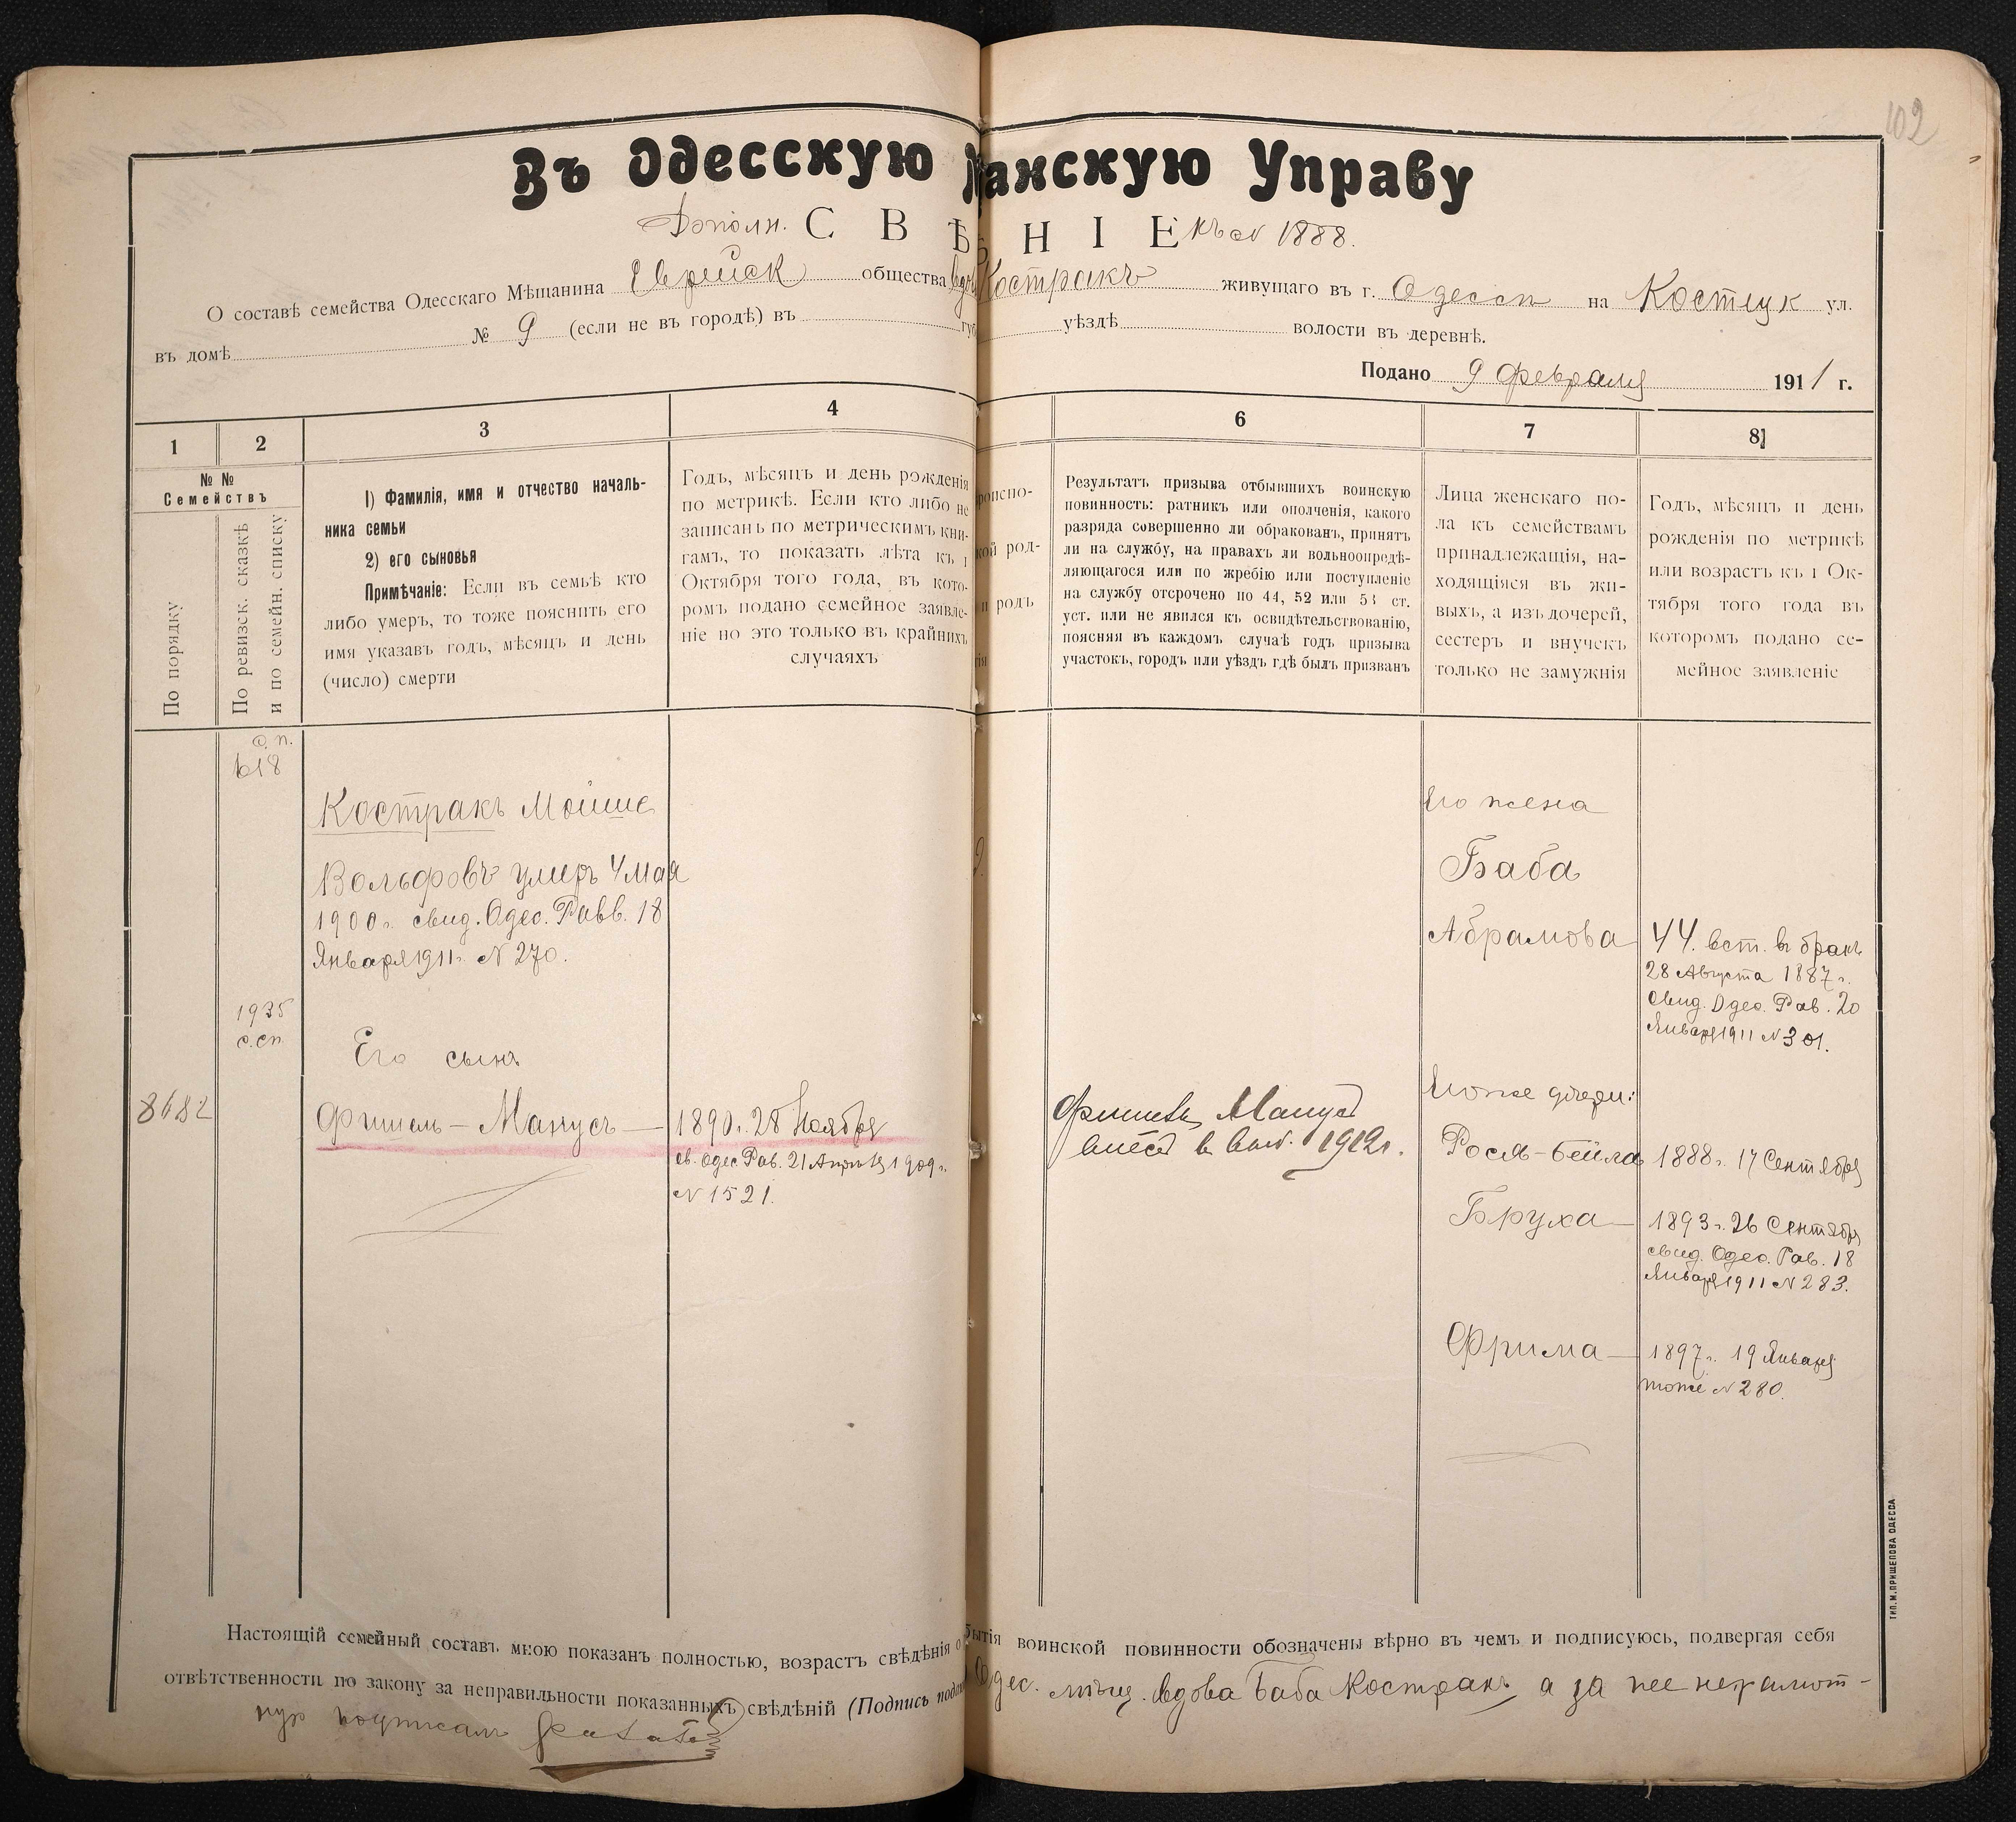 102
Въ Одесскую анскую Управу
Дополн. С В Ѣ Н І Е къ № 1888.
О составѣ семейства Одесскаго Мѣщанина Еврейск общества Кострракъ живущаго въ г. Одесси на Костецк ул.
въ домѣ № 9 (если не въ городѣ) въ уѣздѣ волости въ деревнѣ.
Подано 9 февраля 1911 г.
1 2 3 4 6 7 8
№ №
Семействъ
По порядку
По ревизск. сказкѣ
и по семейн. списку
1) Фамилія, имя и отчество началь-
ника семьи
2) его сыновья
Примѣчаніе: Если въ семьѣ кто
либо умеръ, то тоже пояснить его
имя указавъ годъ, мѣсяцъ и день
(число) смерти
Годъ, мѣсяцъ и день рожденія
по метрикѣ. Если кто либо не
записанъ по метрическимъ кни-
гамъ, то показать лѣта къ 1
Октября того года, въ кото-
ромъ подано семейное заявле-
ніе но это только въ крайнихъ
случаяхъ
роиспо-
кой род-
и родъ
гія
Результатъ призыва отбывшихъ воинскую
повинность: ратникъ или ополченія, какого
разряда совершенно ли обракованъ, принятъ
ли на службу, на правахъ ли вольноопредѣ-
ляющагося или по жребію или поступленіе
на службу отсрочено по 44, 52 или 53 ст.
уст. или не явился къ освидѣтельствованію,
поясняя въ каждомъ случаѣ годъ призыва
участокъ, городъ или уѣздъ гдѣ былъ призванъ
Лица женскаго по-
ла къ семействамъ
принадлежащія, на-
ходящіяся въ жи-
выхъ, а изъ дочерей,
сестеръ и внучекъ
только не замужнія
Годъ, мѣсяцъ и день
рожденія по метрикѣ
или возрастъ къ 1 Ок-
тября того года въ
которомъ подано се-
мейное заявленіе
с. п.
618
Костракъ Мойше
Вольфовъ умеръ 4 мая
1900 г. свид. Одес. Равв. 18
Января 1911 г. № 270.
1935
с. сп.
Его сынъ
8682
Фишель - Манусъ —
1890 г. 28 Ноября
св. Одес. Рав. 21 Апрѣля 1909 г.
№ 1521.
Фишель Манус
внесен в выб. 1912 г.
Его жена
Баба
Абрамова
44. вст. въ бракъ
28 Августа 1887 г.
свид. Одес. Рав. 20
Января 1911 № 301.
Его же дочери:
Рося-Бейла
1888 г. 17 Сентября
Бруха —
1893 г. 26 Сентября
свид. Одес. Рав. 18
Января 1911 № 283.
Фрима —
1897 г. 19 Января
тоже № 280.
Настоящій семейный составъ мною показанъ полностью, возрастъ свѣдѣнія о бытія воинской повинности обозначены вѣрно въ чемъ и подписуюсь, подвергая себя
отвѣтственности по закону за неправильности показанныхъ свѣдѣній (Подпись пода Одес. мѣщ. вдова Баба Костракъ а за нее неграмот-
ную подписалъ
ТИП. М. ПРИЩЕПОВА ОДЕССА